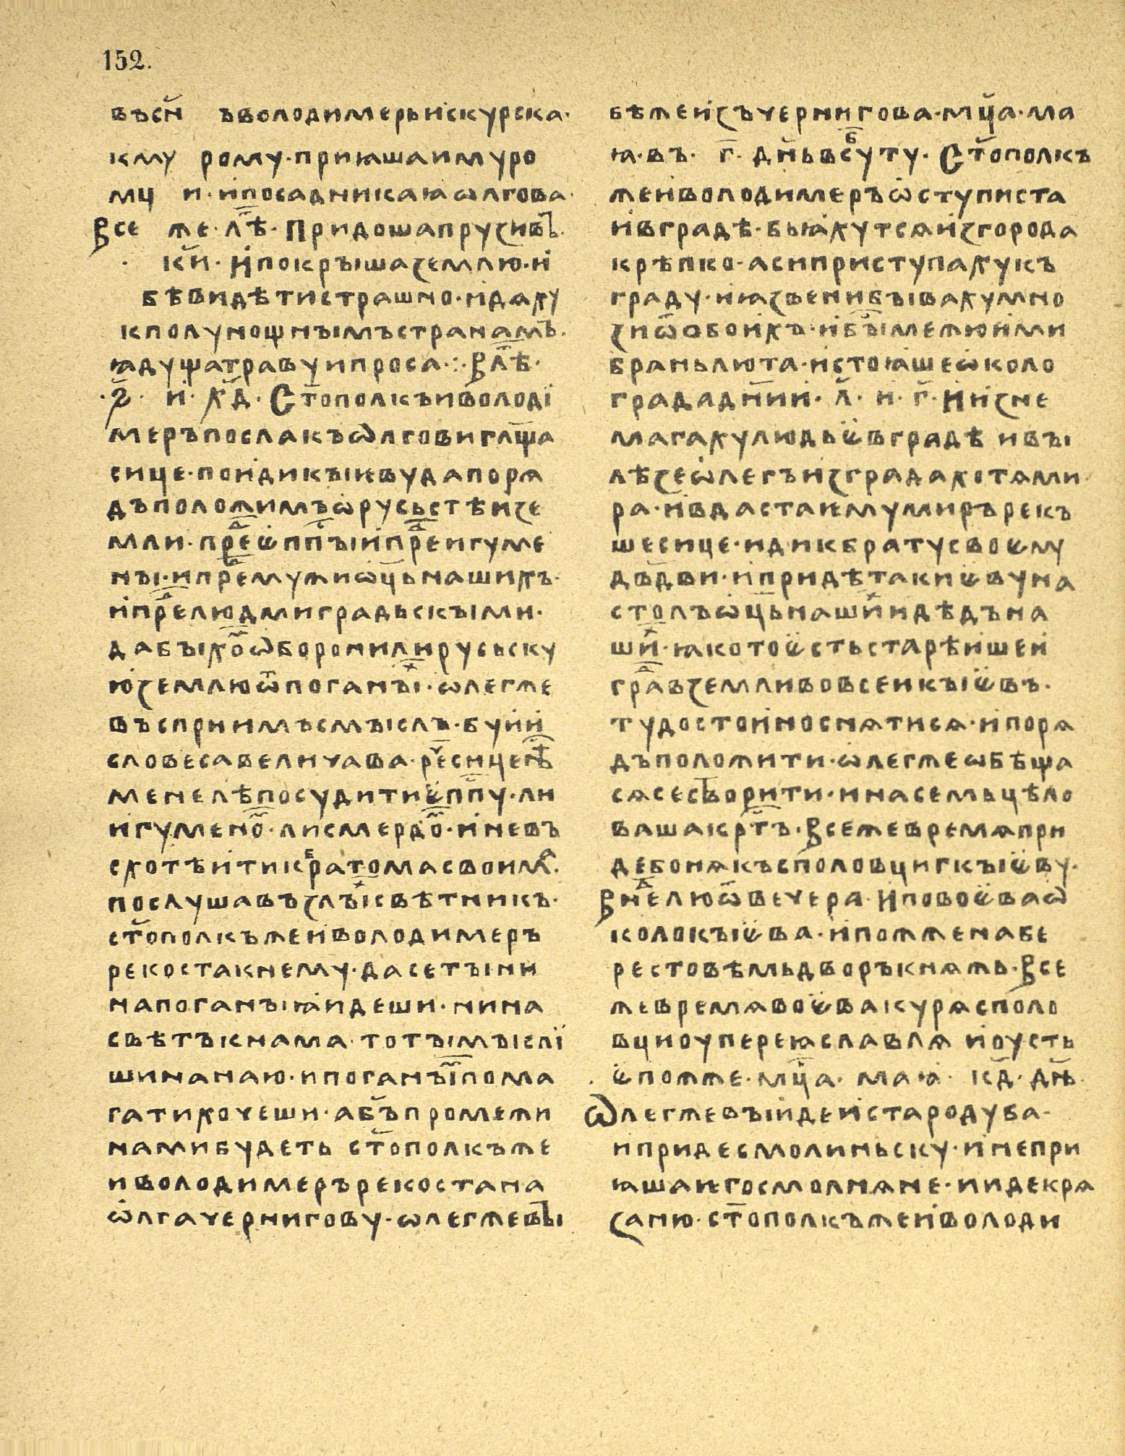 152.
въсн҃ ъволодимерьискурска·
кму рому·приꙗшаимуро
мц и·ипосадникаꙗѡлгова·
Все же·лѣ҃·Придошапрузивъ·
·кн҃·Ипокрꙑшаземлю·и
бѣвидѣтистрашно·идѧху
кполунощнꙑмъстранамъ·
ꙗдущатравуипроса·:·Влѣ҃·
·҂ꙅ҃·и·х҃д·Ст҃ополкъиволоді
меръпослакъѡлговигл҃ща
сице·поидикꙑѥвудапорѧ
дъположимъѡрусьстѣизе
мли·пре҃еппꙑ҃ипре҃игуме
нꙑ·ипре҃мужиѡц҃ьнашихъ·
ипре҃людмиградьскꙑми·
дабꙑхо҃ѡборонилирусьску
юземлюѿпоганꙑ·ѡлегже
въсприимъсмꙑслъ·буии
словесавеличава·рѣ҃сиценѣ
менелѣпосудитиєпп҃у·ли
игумено҃·лисмердо҃·иневъ
схотѣитикратомасвоима·
послушавъзлꙑсвѣтникъ·
ст҃ополкъжеиволодимеръ
рекостакнему·дасетꙑни
напоганꙑꙗидеши·нина
свѣтъкнама·тотꙑмꙑслі
шинанаю·ипоганꙑ҃пома
гатихочеши·абъ҃промежи
наmибудеть ст҃ополкъже
иволодимеръրекостана
ѡлгачернигову·ѡлегжевꙑ
бѣжеизъчернигова·мц҃а·ма
ꙗ·въ·г҃·дн҃ьвсуб҃ту·Ст҃ополкъ
жеиволодимеръѡступиста
ивградѣ·бьꙗхутсѧизгорода
крѣпко·асиприступахукъ
граду·иꙗзвенибꙑвахумно
зиѿобоихъ·ибꙑ҃межюими
браньлюта·истоꙗшеѡколо
грададн҃ии·л҃·и·г҃·Иизне
магахулюдьєвградѣ ивꙑ
лѣзеѡлегъизградахотѧми
ра·ивдастаимумиръ рекъ
шесице·идикбратусвоєму
дв҃дви·ипридѣтакиєвуна
столъѡц҃ьнаши҃идѣдъна
ши҃·ꙗкотоєстьстарѣишеи
гра҃вземливовсеикꙑєвъ·
тудостоиноснѧтисѧ·ипорѧ
дъположити·ѡлегжеѡбѣща
сѧсесътворити·инасемьцѣло
вашакрт҃ъ·Всежевремѧпри
дебонѧкъсполовцигкꙑєву·
Вне҃люѿвечера·Иповоєваѡ
колокꙑєва·ипожженабе
рестовѣмьдворъкнѧжь·Все
жевремѧвоєвакурѧсполо
вциоупереꙗславлѧ иоусть
єпожже·мц҃а·маꙗ·кд҃·дн҃ь
Ѡлегжевꙑидеистародуба·
ипридесмолиньску·инепри
ꙗшаѥгосмолнѧне·иидекрѧ
заню·ст҃ополкъжеиволоди